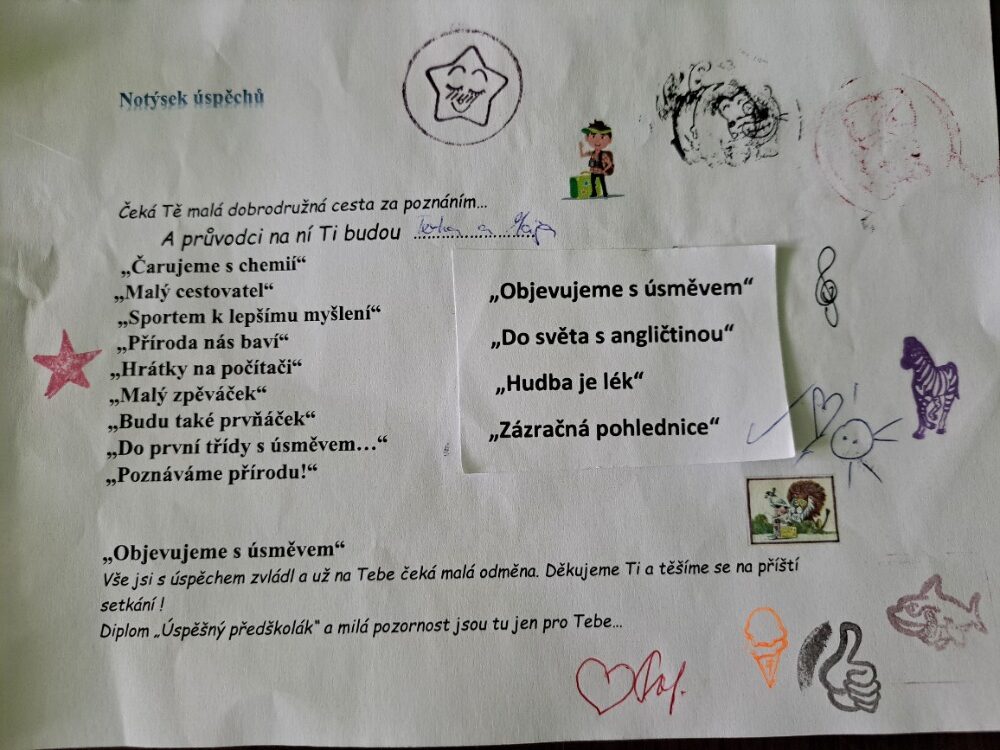 Notýsek úspěchů
Čeká Tě malá dobrodružná cesta za poznáním...
A průvodci na ní Ti budou
„Čarujeme s chemií“
„Malý cestovatel“
„Sportem k lepšímu myšlení“
„Příroda nás baví“
„Hrátky na počítači“
„Malý zpěváček“
„Budu také prvňáček“
„Do první třídy s úsměvem…“
„Poznáváme přírodu!“
„Objevujeme s úsměvem“
„Do světa s angličtinou“
„Hudba je lék“
„Zázračná pohlednice“
„Objevujeme s úsměvem“
Vše jsi s úspěchem zvládl a už na Tebe čeká malá odměna. Děkujeme Ti a těšíme se na příští
setkání !
Diplom „Úspěšný předškolák“ a milá pozornost jsou tu jen pro Tebe...